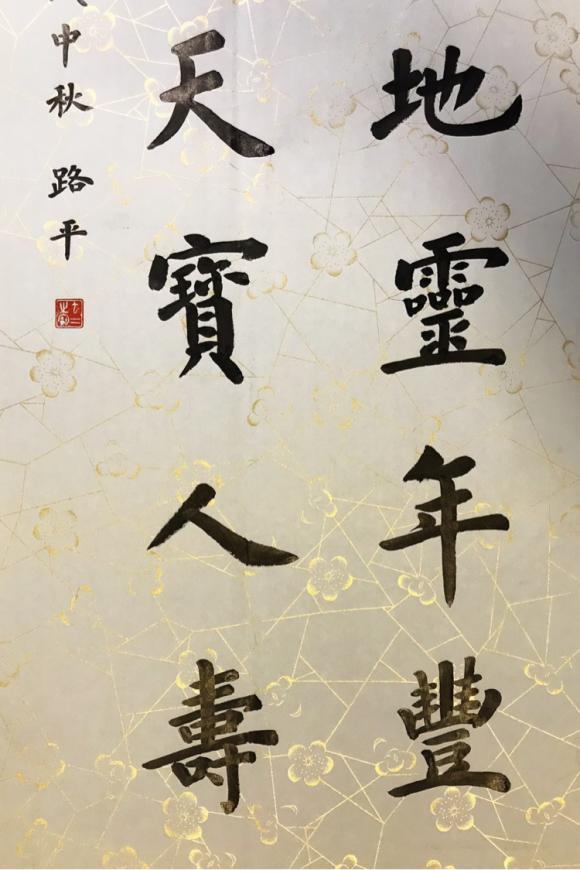 地靈年豐
天寶人壽
中秋 路平